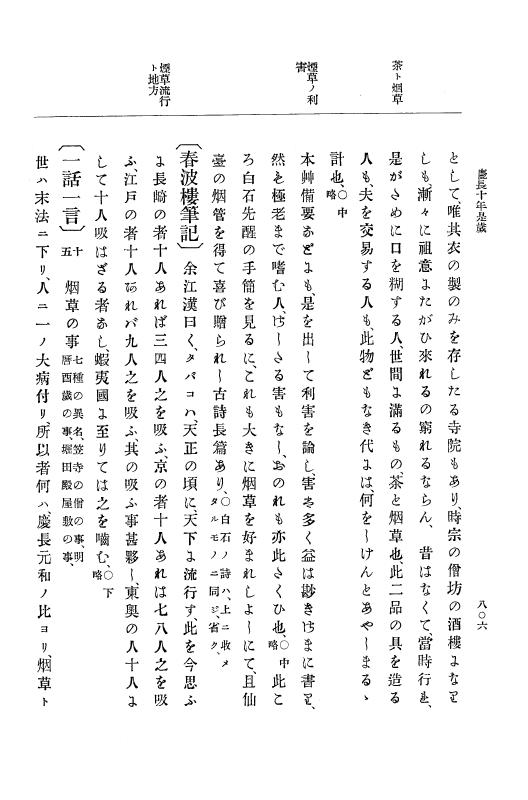 慶長十年是歳
八〇六
茶ト烟草
煙草ノ利害
煙草流行ト地方
として、唯其衣の製のみを存したる寺院もあり、時宗の僧坊の酒樓よなせ
しも、漸々に祖意よたがひ來れるの窮れるならん、昔はなくて、當時行を、
是がさめに口を糊する人、世間よ滿るもの、茶と烟草也、此二品の具を造る
人も、夫を交易する人も、此物どもなき代よは、何を〳〵けんとあや〳〵まるゝ
計也、〇中略
本艸備要あどよも、是を出して利害を論し、害を多く益は尠きさまに書せ、
然を極老まで嗜む人、させる害もなし、おのれも亦此さくひ也、〇中略此こ
ろ白石先醒の手簡を見るに、これも大きに烟草を好まれしよしにて、且仙
臺の烟管を得て喜び贈られし古詩長篇あり、〇白石ノ詩ハ、上ニ收メタルモノニ同ジ、省ク、
〔春波樓筆記〕 余江漢曰く、タバコハ、天正の頃に、天下よ流行す、此を今思ふ
よ長崎の者十人あれば三四人之を吸ふ、京の者十人あれは七八人之を吸
ふ、江戸の者十人あれバ九人之を吸ふ、其の吸ふ事甚夥し、東奥の人十人よ
して十人吸はざる者あし、蝦夷國よ至りては之を嚙む、〇下略
〔一話一言〕 十五 烟草の事 七種の異名、笠寺の僧の事、明暦酉歳の事、堀田殿屋敷の事、
世ハ末法ニ下リ、人ニ一ノ大病付リ、所以者何ハ、慶長元和ノ比ヨリ、烟草ト